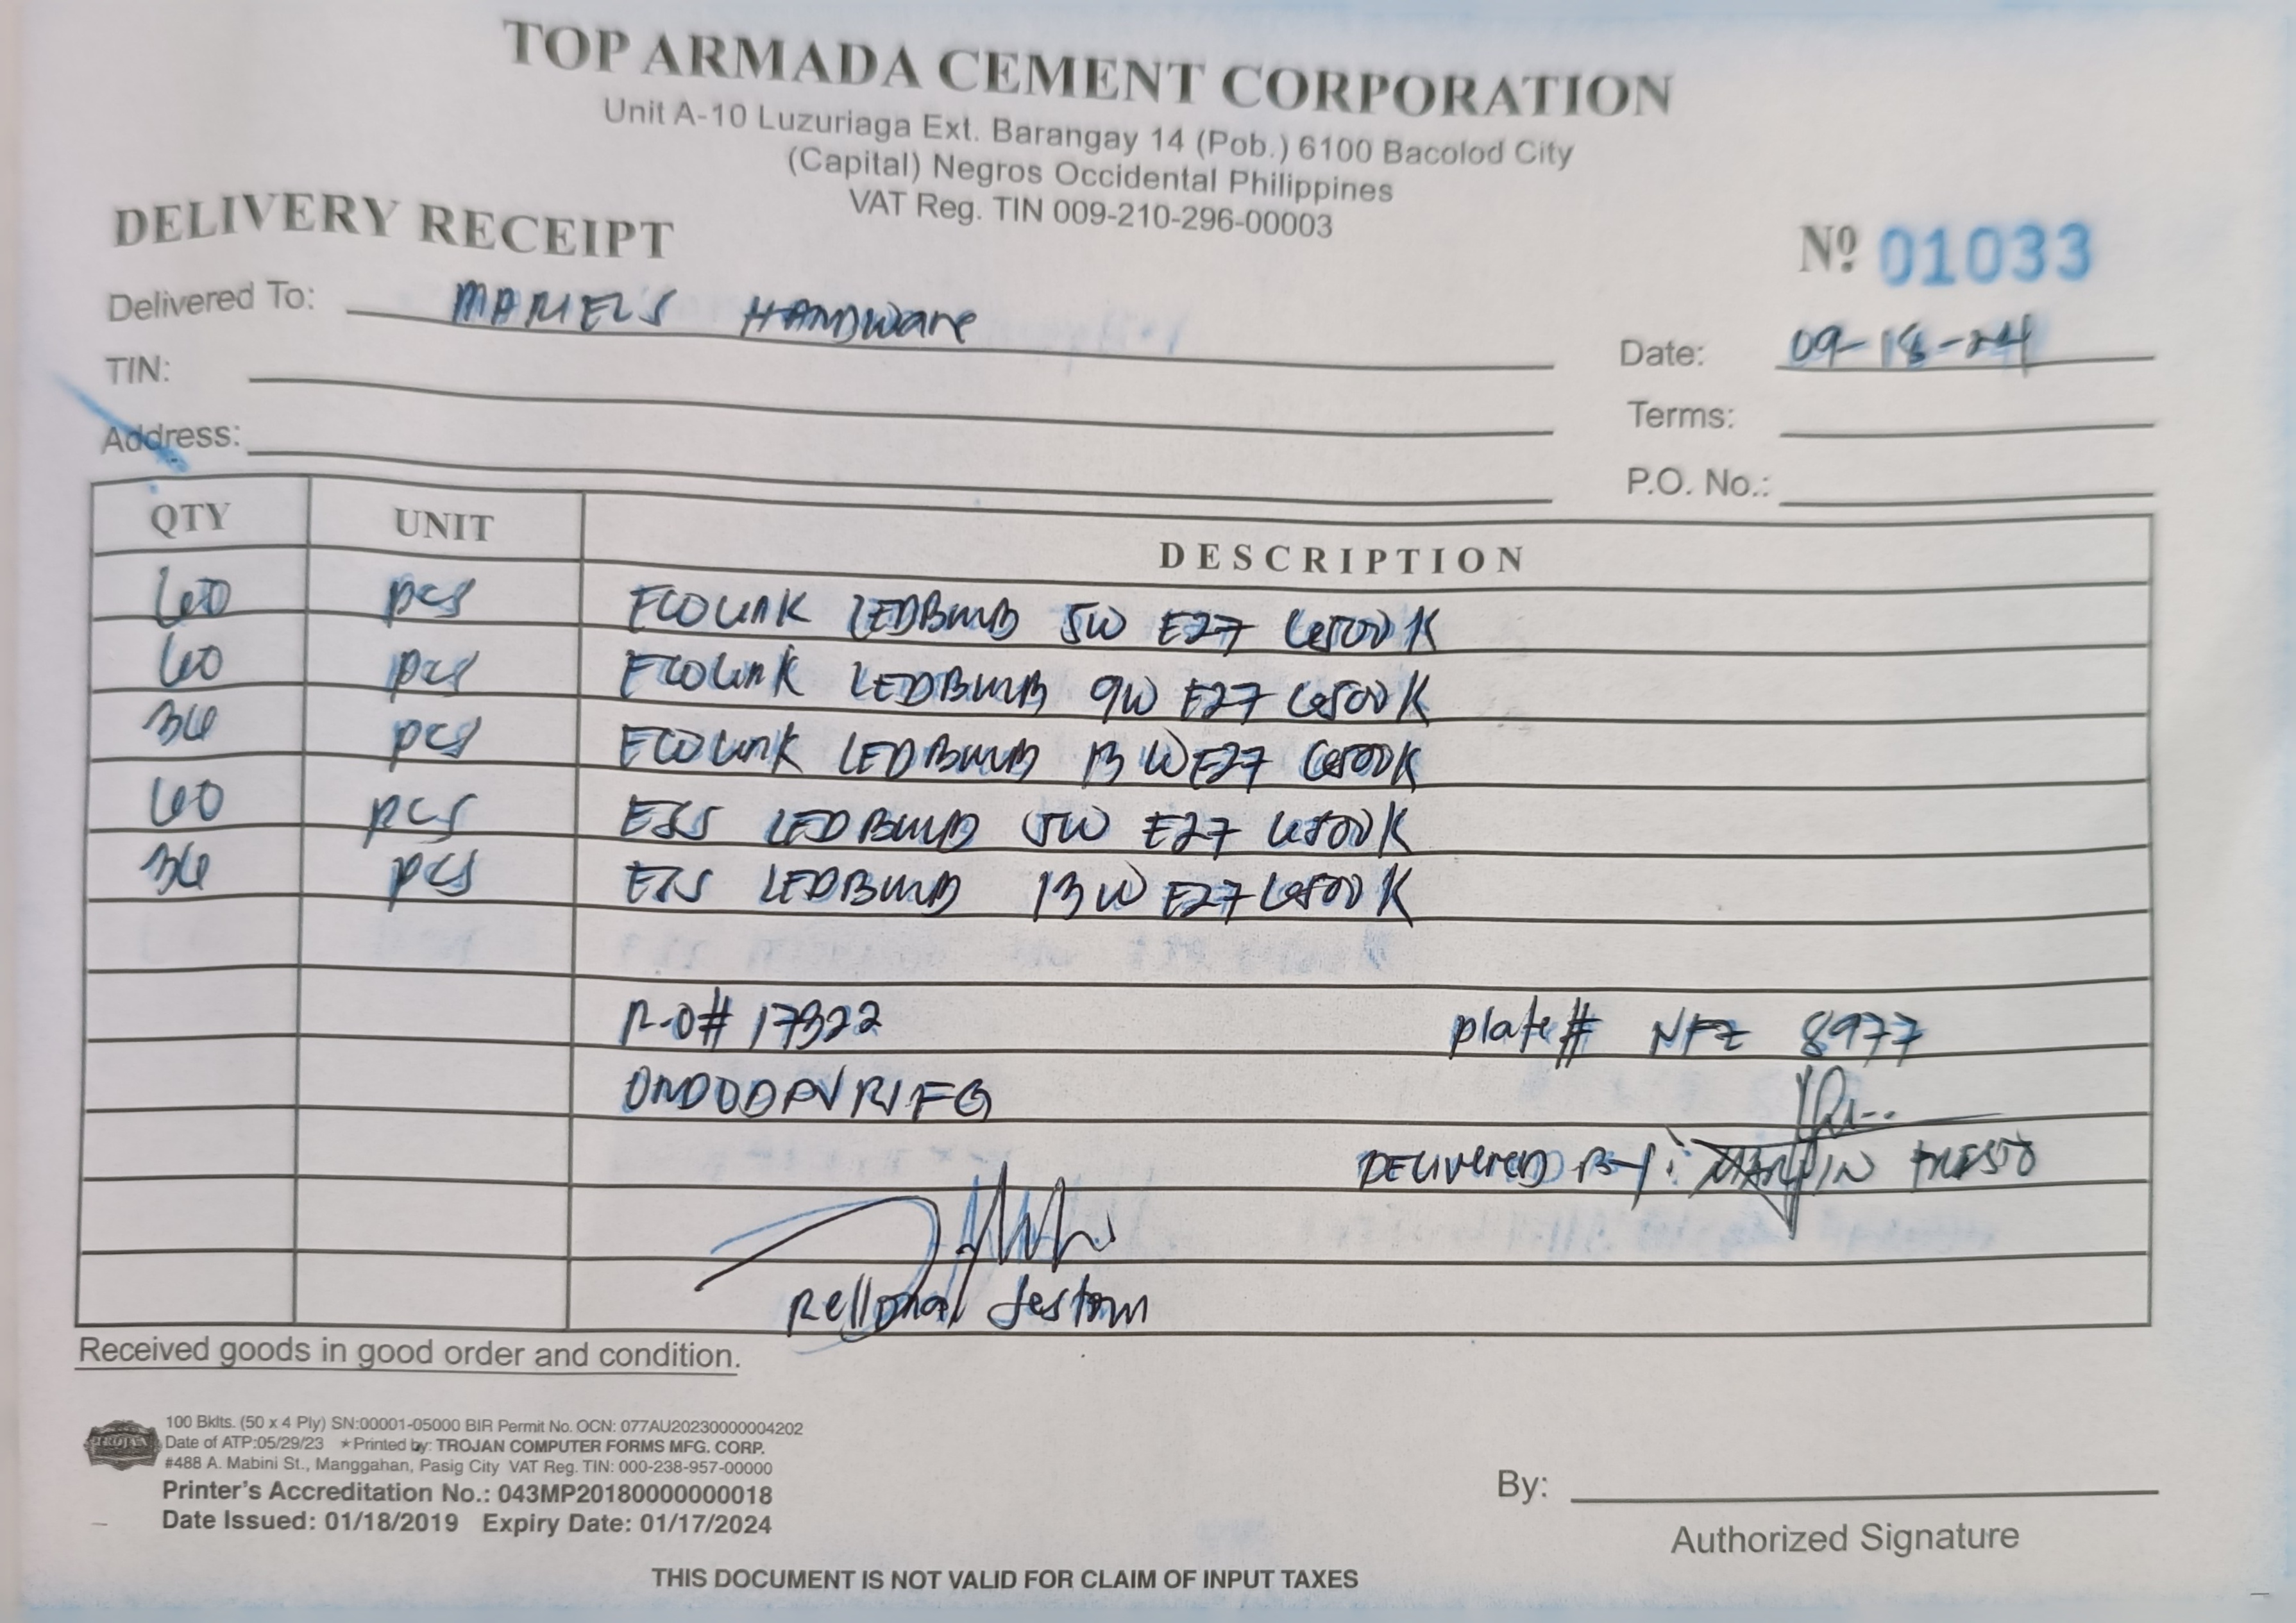 TOP ARMADA CEMENT CORPORATION
Unit A-10 Luzuriaga Ext. Barangay 14 (Pob.) 6100 Bacolod City
(Capital) Negros Occidental Philippines
VAT Reg. TIN 009-210-296-00003
DELIVERY RECEIPT
Nº 01033
Delivered To: MARIEL'S HARDWare
Date: 09-18-24
TIN:
Terms:
Address:
P.O. No.:
QTY UNIT DESCRIPTION
60 pcs ECOLINK LEDBULB 5W E27 6500K
60 pcs ECOLINK LEDBULB 9W E27 6500K
36 pcs ECOLINK LEDBULB 13W E27 6500K
60 pcs ESS LEDBULB 5W E27 6500K
36 pcs ESS LEDBULB 13W E27 6500K
P.O# 17322 plate# NFZ 8977
DELIVERED BY:
Received goods in good order and condition.
TROJAN
100 Bklts. (50 x 4 Ply) SN:00001-05000 BIR Permit No. OCN: 077AU20230000004202
Date of ATP:05/29/23 ★Printed by: TROJAN COMPUTER FORMS MFG. CORP.
#488 A. Mabini St., Manggahan, Pasig City VAT Reg. TIN: 000-238-957-00000
Printer's Accreditation No.: 043MP20180000000018
Date Issued: 01/18/2019 Expiry Date: 01/17/2024
By:
Authorized Signature
THIS DOCUMENT IS NOT VALID FOR CLAIM OF INPUT TAXES